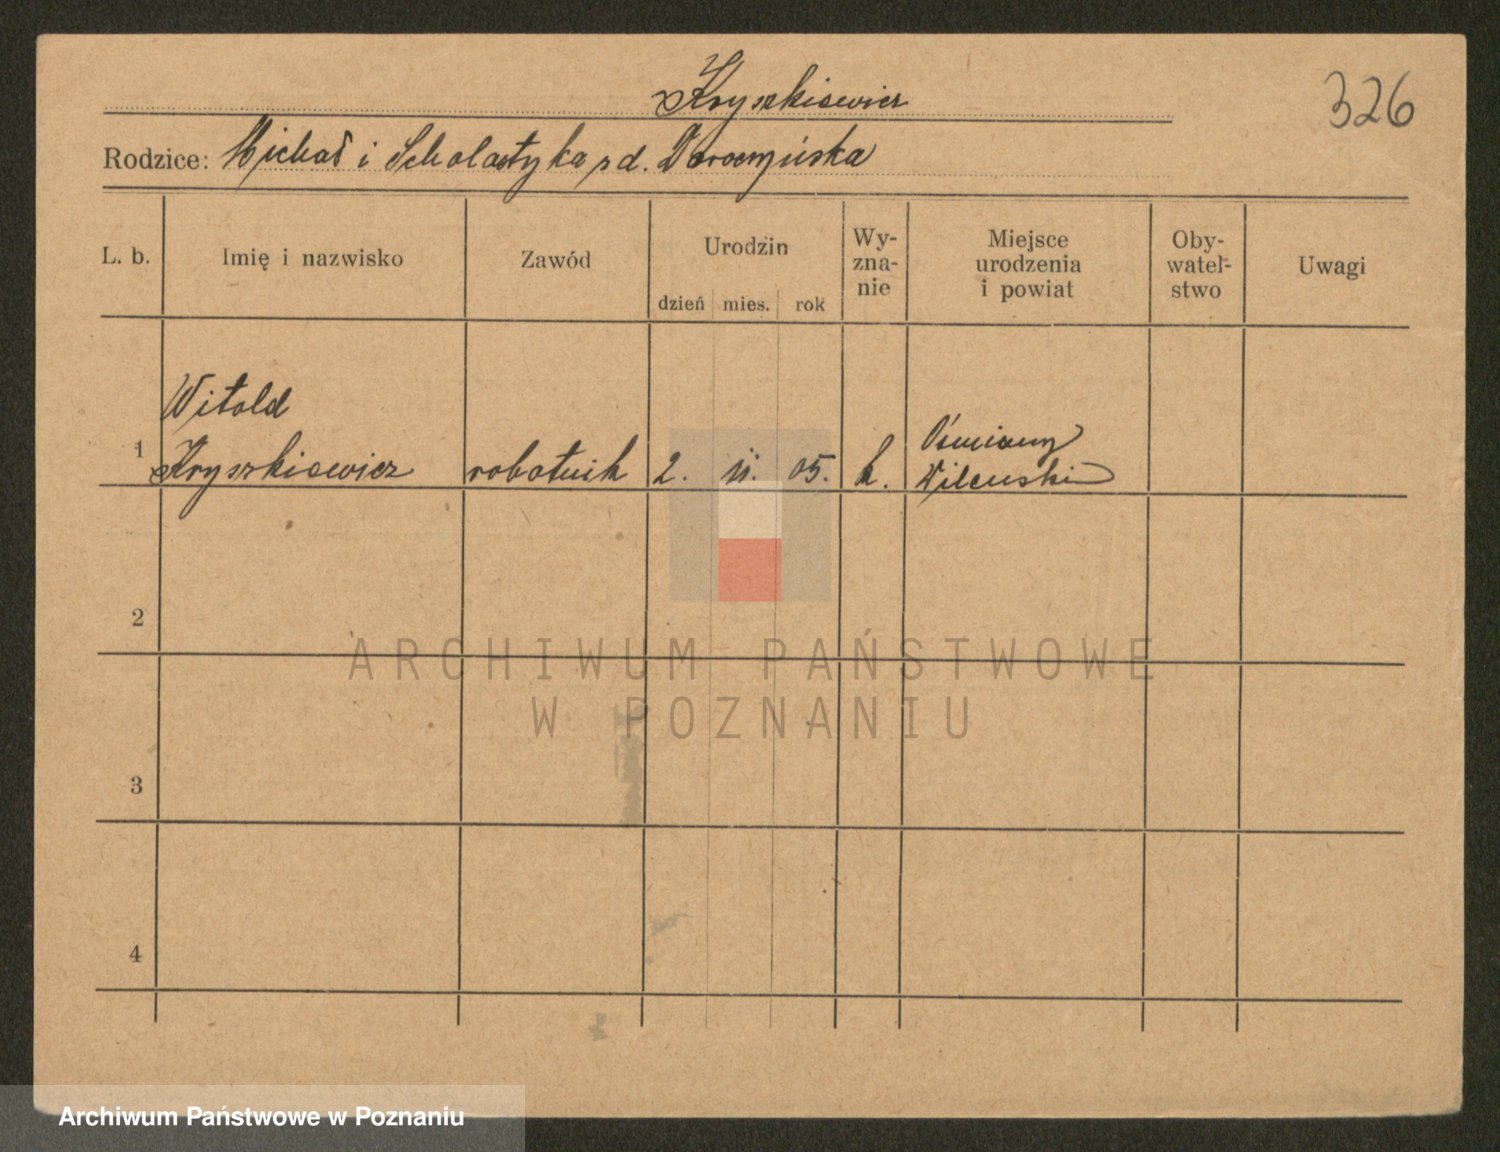 Kryszkiewicz
326
Rodzice: Michał i Scholastyka zd.
L. b.
Imię i nazwisko
Zawód
Urodzin
dzień mies. rok
Wy-
zna-
nie
Miejsce
urodzenia
i powiat
Oby-
watel-
stwo
Uwagi
1
Witold
Kryszkiewicz
robotnik
2. 05.
k.
Ośmiany
Wileński
2
ARCHIWUM PAŃSTWOWE
W POZNANIU
3
4
Archiwum Państwowe w Poznaniu